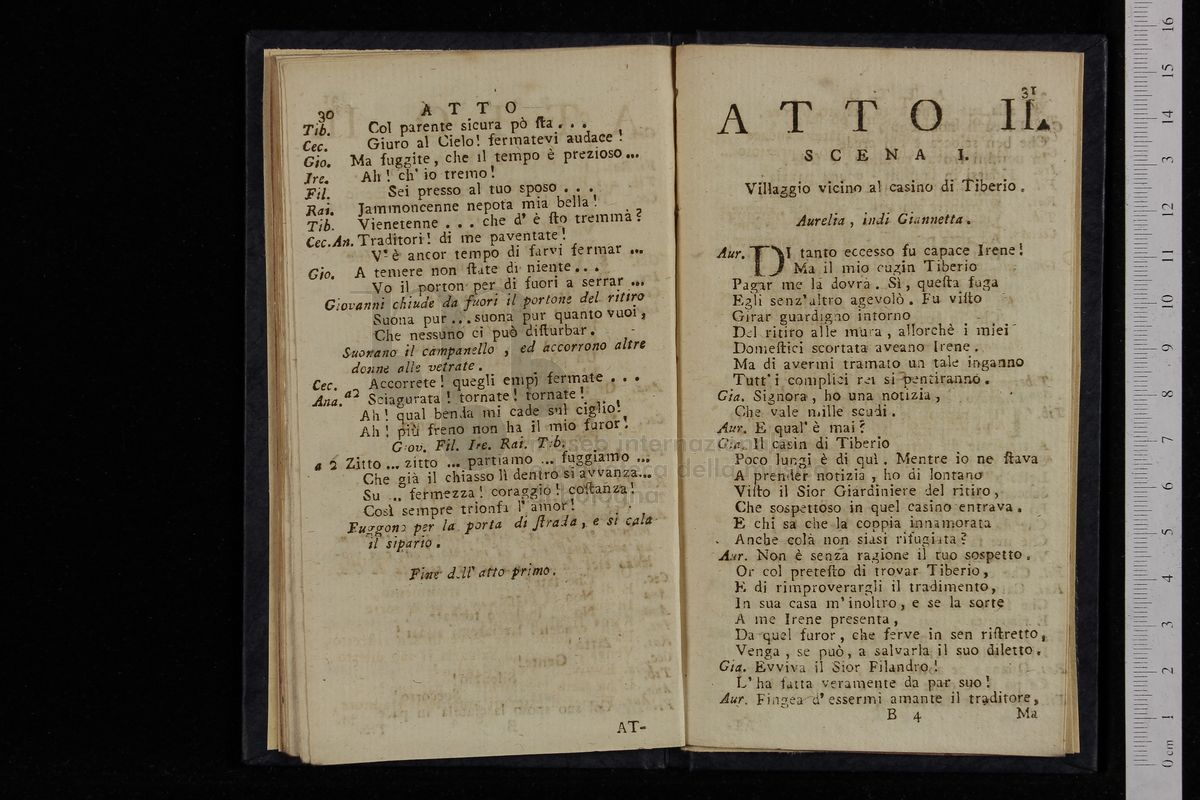 30
A T T O
Tib. Col parente sicura pò ſta . . .
Cec. Giuro al Cielo! fermatevi audace!
Gio. Ma fuggite, che il tempo è prezioso ...
Ire. Ah! ch' io tremo!
Fil. Sei presso al tuo sposo . . .
Rai. Jammoncenne nepota mia bella!
Tib. Vienetenne . . . che d' è ſto tremmà?
Cec.An. Traditori! di me paventate!
V' è ancor tempo di farvi fermar ...
Gio. A temere non ſtate di niente . . .
Vo il porton per di fuori a serrar ...
Giovanni chiude da fuori il portone del ritiro
Suona pur ... suona pur quanto vuoi,
Che nessuno ci può diſturbar.
Suonano il campanello, ed accorrono altre
donne alle vetrate.
Cec. Accorrete! quegli empj fermate . . .
Ana. a2 Sciagurata! tornate! tornate!
Ah! qual benda mi cade sul ciglio!
Ah! più freno non ha il mio furor!
Giov. Fil. Ire. Rai. Tib.
a 2 Zitto ... zitto ... partiamo ... fuggiamo ...
Che già il chiasso lì dentro si avvanza...
Su ... fermezza! coraggio! coſtanza!
Così sempre trionfa l' amor!
Fuggono per la porta di ſtrada, e si cala
il sipario.
Fine dell' atto primo.
AT-
31
A T T O II.
S C E N A I.
Villaggio vicino al casino di Tiberio.
Aurelia, indi Giannetta.
Aur. DI tanto eccesso fu capace Irene!
Ma il mio cugin Tiberio
Pagar me la dovrà. Sì, queſta fuga
Egli senz'altro agevolò. Fu viſto
Girar guardigno intorno
Del ritiro alle mura, allorchè i miei
Domeſtici scortata aveano Irene.
Ma di avermi tramato un tale inganno
Tutt' i complici rei si pentiranno.
Gia. Signora, ho una notizia,
Che vale mille scudi.
Aur. E qual' è mai?
Gia. Il casin di Tiberio
Poco lungi è di quì. Mentre io ne ſtava
A prender notizia, ho di lontano
Viſto il Sior Giardiniere del ritiro,
Che sospettoso in quel casino entrava.
E chi sa che la coppia innamorata
Anche colà non siasi rifugiata?
Aur. Non è senza ragione il tuo sospetto.
Or col preteſto di trovar Tiberio,
E di rimproverargli il tradimento,
In sua casa m'inoltro, e se la sorte
A me Irene presenta,
Da quel furor, che ferve in sen riſtretto,
Venga, se può, a salvarla il suo diletto.
Gia. Evviva il Sior Filandro!
L' ha fatta veramente da par suo!
Aur. Fingea d' essermi amante il traditore,
B 4 Ma